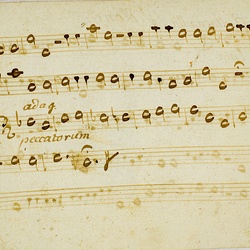 adag
peccatorum